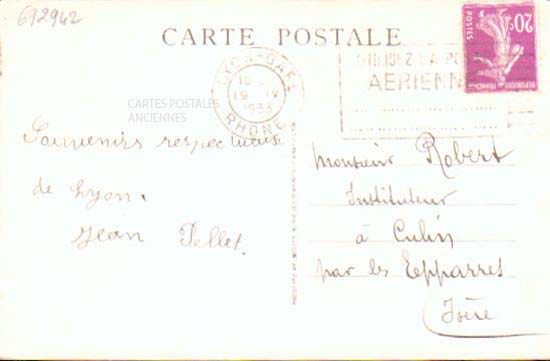 692942
CARTE POSTALE
LYON-GARE
16
19 IV
1933
RHÔNE
UTILISEZ LA POSTE
AERIENNE
20c
REPUBLIQUE FRANÇAISE
CARTES POSTALES
ANCIENNES
Souvenirs respectueux
de Lyon.
Jean Pellet.
Monsieur Robert
Instituteur
à Culin
par les Epparres
Isère